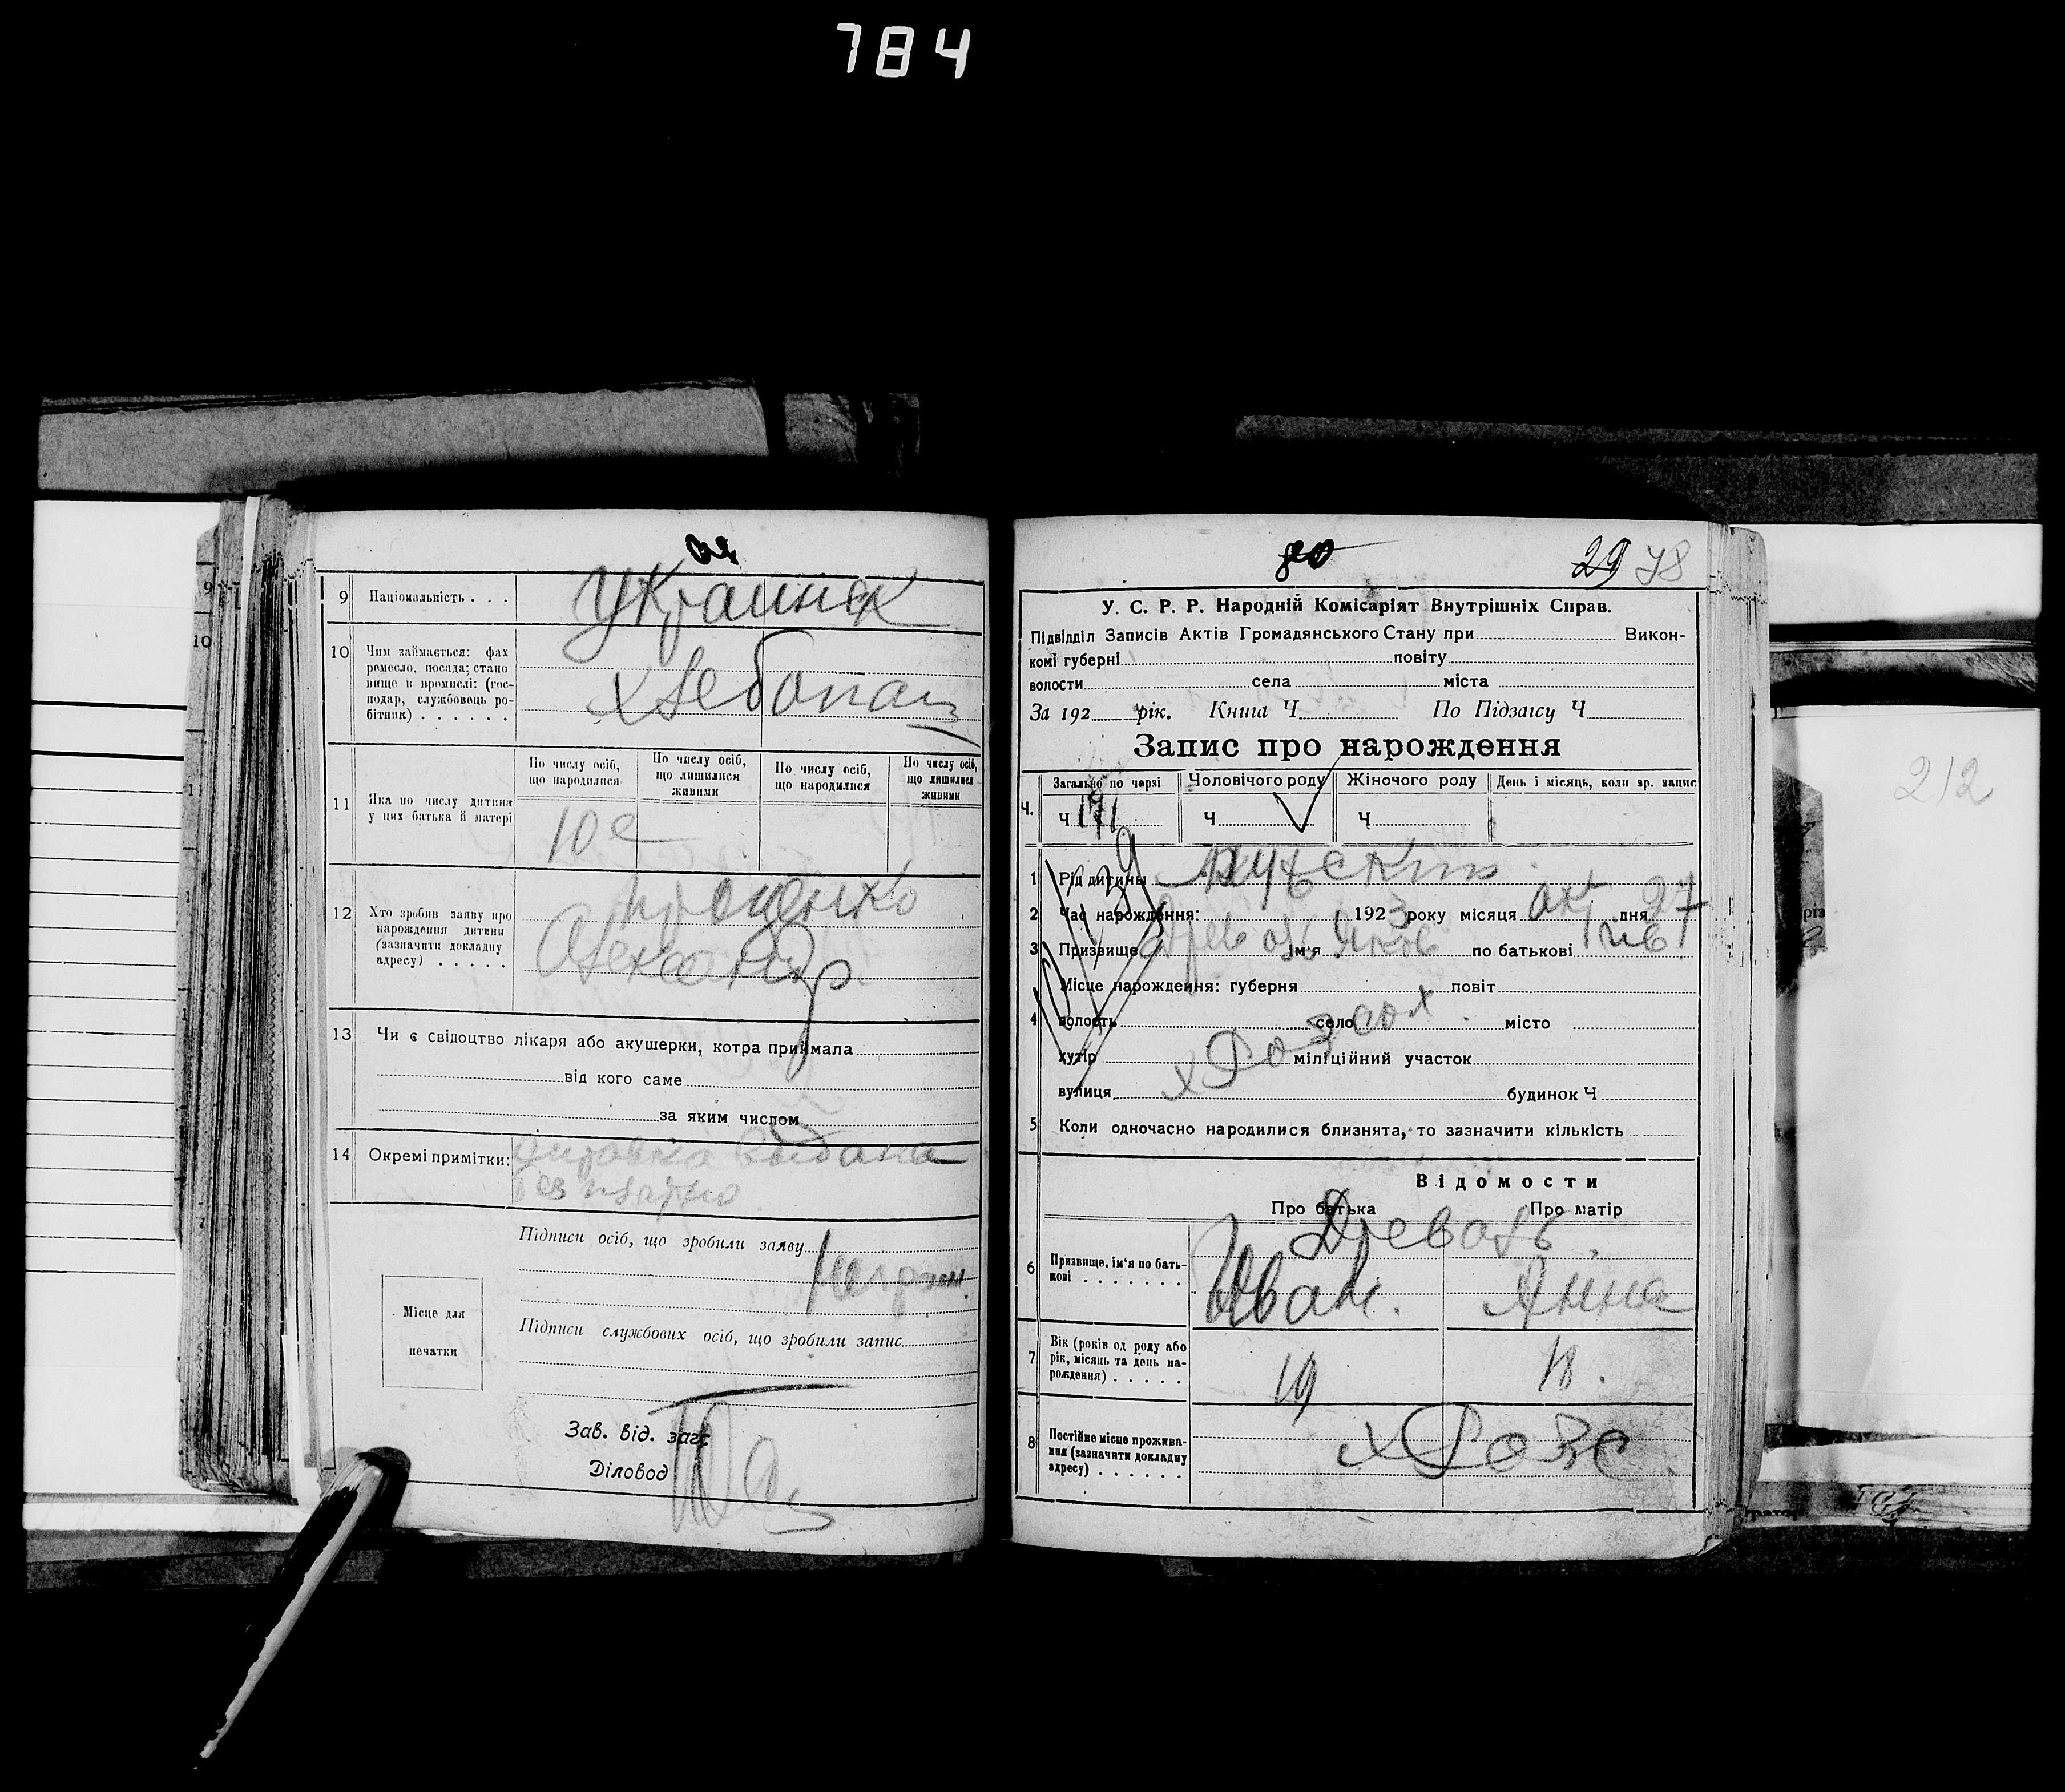 784
9 Національність . . .
Украинск
10 Чим займається: фах
ремесло, посада; стано
вище в промислі: (гос-
подар, службовець ро-
бітник) . . . . . .
хлебопаш
11 Яка по числу дитина
у цих батька й матері
По числу осіб,
що народилися
По числу осіб,
що лишилися
живими
По числу осіб,
що народилися
По числу осіб,
що лишилися
живими
10е
12 Хто зробив заяву про
нарождення дитини
(зазначити докладну
адресу) . . . . .
Проценко
Александр
13 Чи є свідоцтво лікаря або акушерки, котра приймала
від кого саме
за яким числом
14 Окремі примітки:
выдана
Підписи осіб, що зробили заяву
Місце для
печатки
Підписи службових осіб, що зробили запис
Зав. від. загс
Діловод
29 78
У. С. Р. Р. Народній Комісаріят Внутрішніх Справ.
Підвідділ Записів Актів Громадянського Стану при Викон-
комі губерні повіту
волости села міста
За 192 рік. Книга Ч. По Підзагсу Ч.
Запис про нарождення
Ч. Загально по черзі Чоловічого роду Жіночого роду День і місяць, коли зр. запис
Ч. Ч. V Ч.
1 Рід дитини Мужским
2 Час нарождення: 1923 року місяця окт дня 27
3 Призвище Древаль ім'я Яков по батькові Ив
4 Місце нарождення: губерня повіт
волость село місто
хутір міліційний участок
вулиця будинок Ч
5 Коли одночасно народилися близнята, то зазначити кількість
Відомости
Про батька Про матір
Древаль
6 Призвище, ім'я по бать-
кові . . . . . . .
Иван. Анна
7 Вік (років од роду або
рік, місяць та день на-
рождення) . . . . .
19 18.
8 Постійне місце прожива-
ння (зазначити докладну
адресу) . . . . . .
212